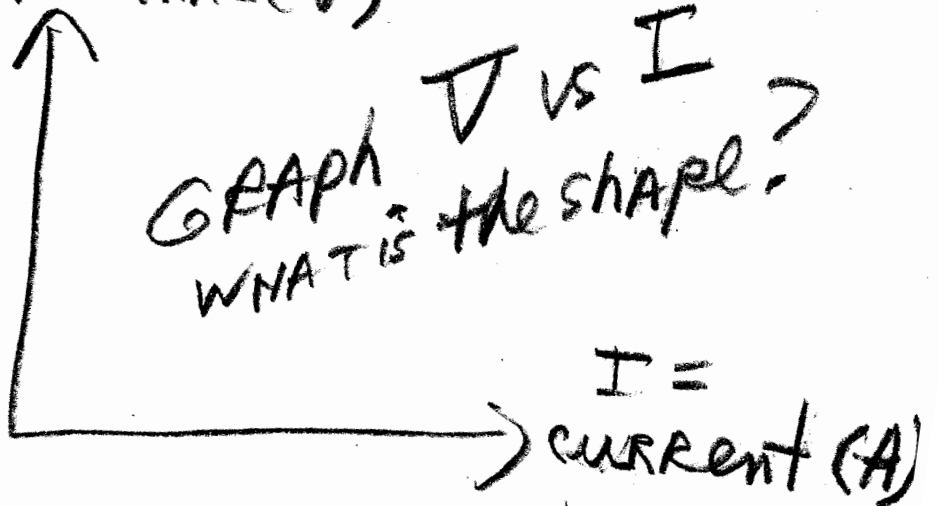 GRAPH V vs I
WHAT is the shape?
I =
current (A)